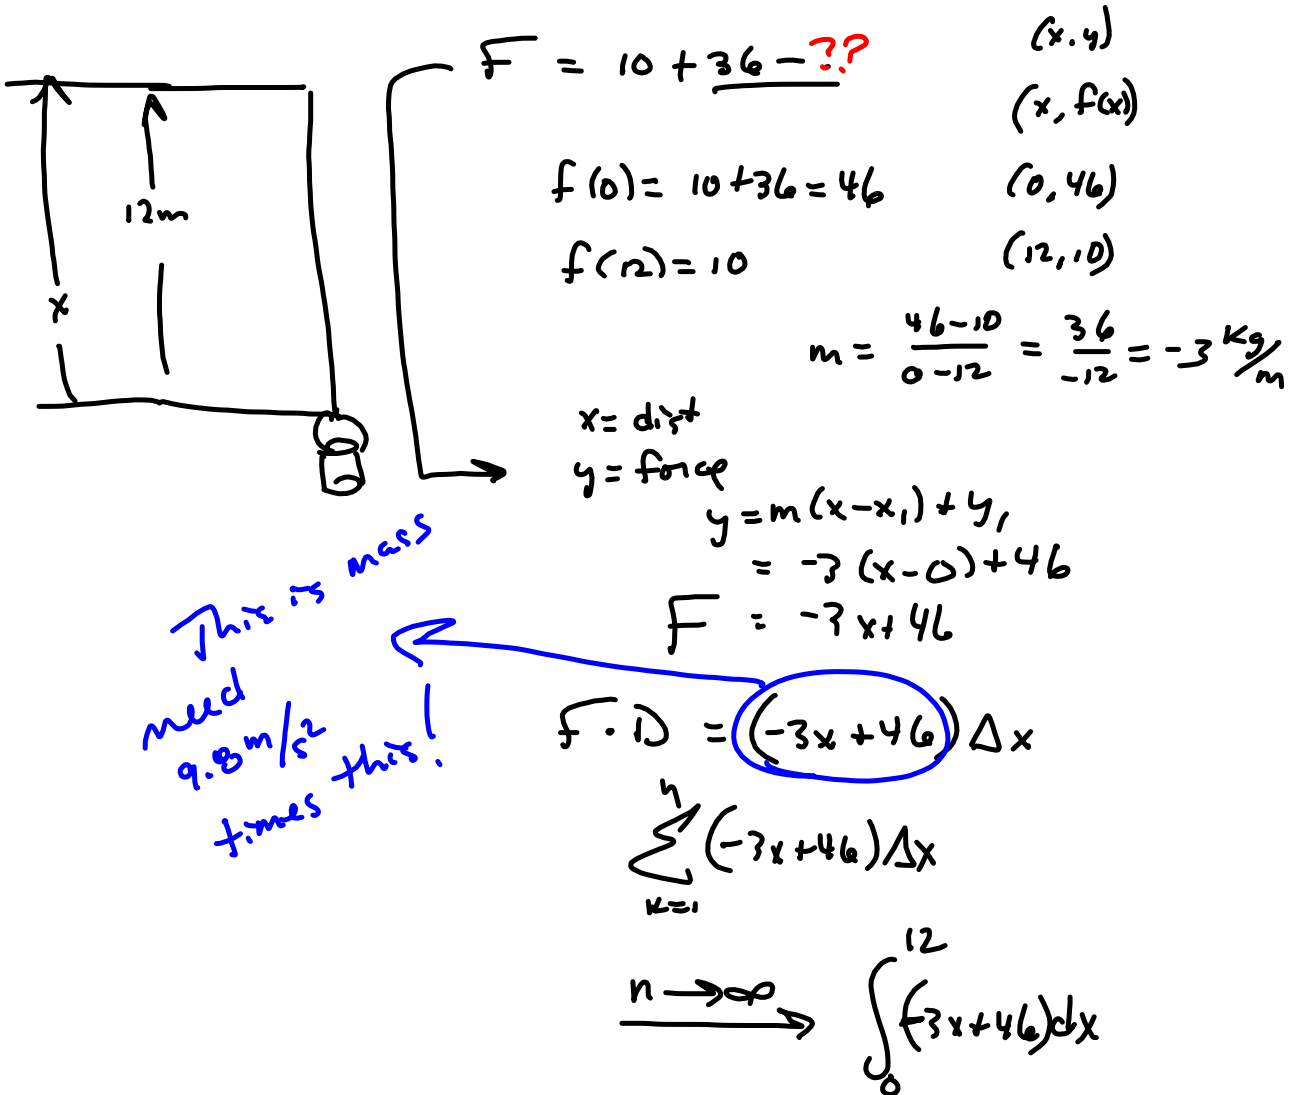 F = 10 + 36 - ??
(x, y)
(x, f(x))
f(0) = 10 + 36 = 46
(0, 46)
f(12) = 10
(12, 10)
12m
x
m = 46-10 / 0-12 = 36 / -12 = -3 Kg/m
x = dist
y = force
y = m(x-x₁) + y₁
= -3(x-0) + 46
F = -3x+46
This is mass
need
9.8 m/s²
times this!
F · D = (-3x+46) Δx
n
∑ (-3x+46) Δx
k=1
n → ∞
12
∫ (-3x+46) dx
0